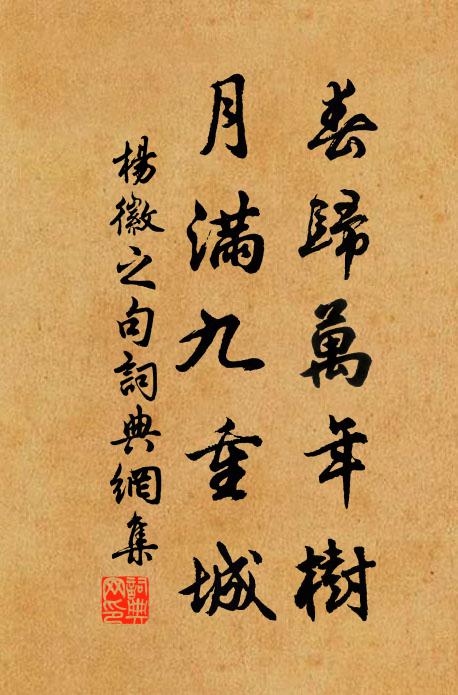 春歸萬年樹
月滿九重城
楊徽之句詞典網集
詞典網印